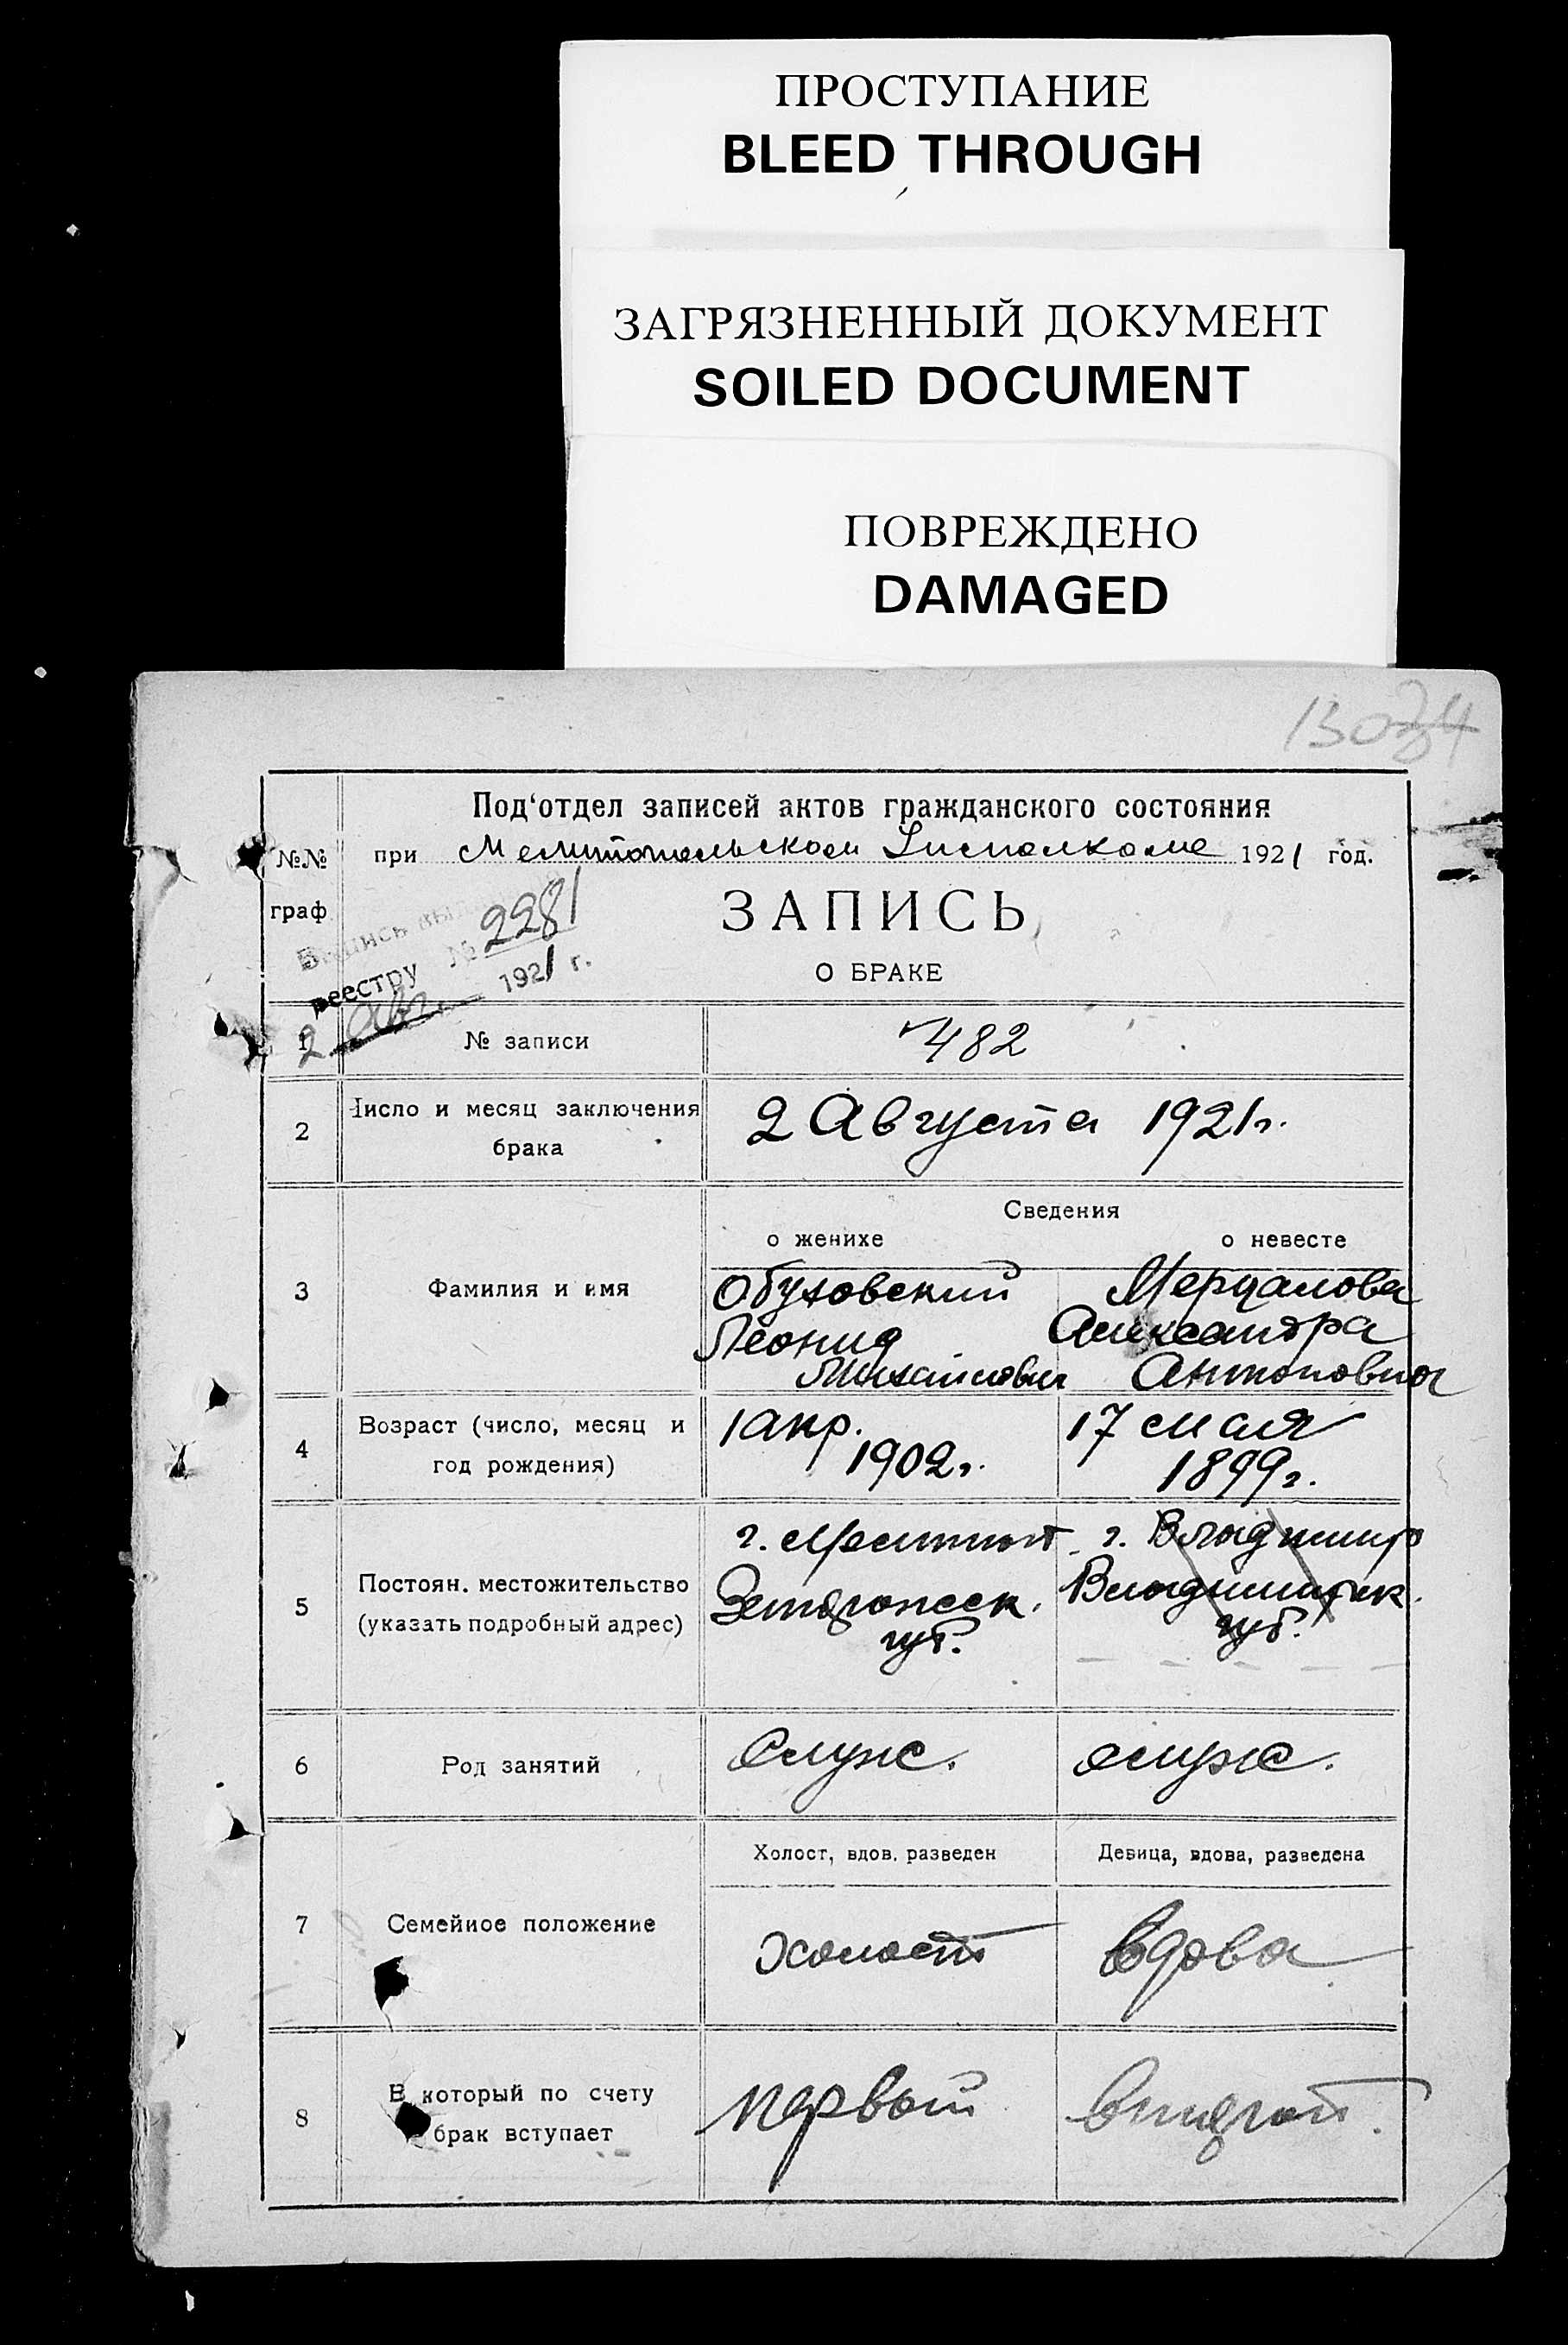 ПРОСТУПАНИЕ
BLEED THROUGH
ЗАГРЯЗНЕННЫЙ ДОКУМЕНТ
SOILED DOCUMENT
ПОВРЕЖДЕНО
DAMAGED
Под'отдел записей актов гражданского состояния
№№ граф
при Мелитопольском 1921 год.
ЗАПИСЬ
О БРАКЕ
реестру № 2281
2 авг. 1921 г.
1 № записи 482
2 Число и месяц заключения
брака
2 Августа 1921 г.
Сведения
о женихе о невесте
3 Фамилия и имя
Обуховский
Леонид
Михайлович
Мердалова
Александра
Антоновна
4 Возраст (число, месяц и
год рождения)
1 апр.
1902 г.
17 мая
1899 г.
5 Постоян. местожительство
(указать подробный адрес)
г. Мелитоп
губ.
г. Владимир
Владимирск.
губ.
6 Род занятий Служ. служ.
Холост, вдов, разведен Девица, вдова, разведена
7 Семейное положение холост вдова
8 В который по счету
брак вступает
первый второй